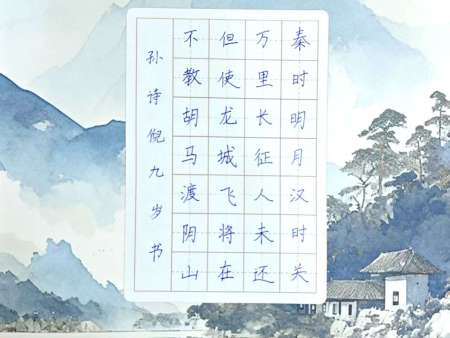 秦时明月汉时关
万里长征人未还
但使龙城飞将在
不教胡马渡阴山
孙诗倪九岁书